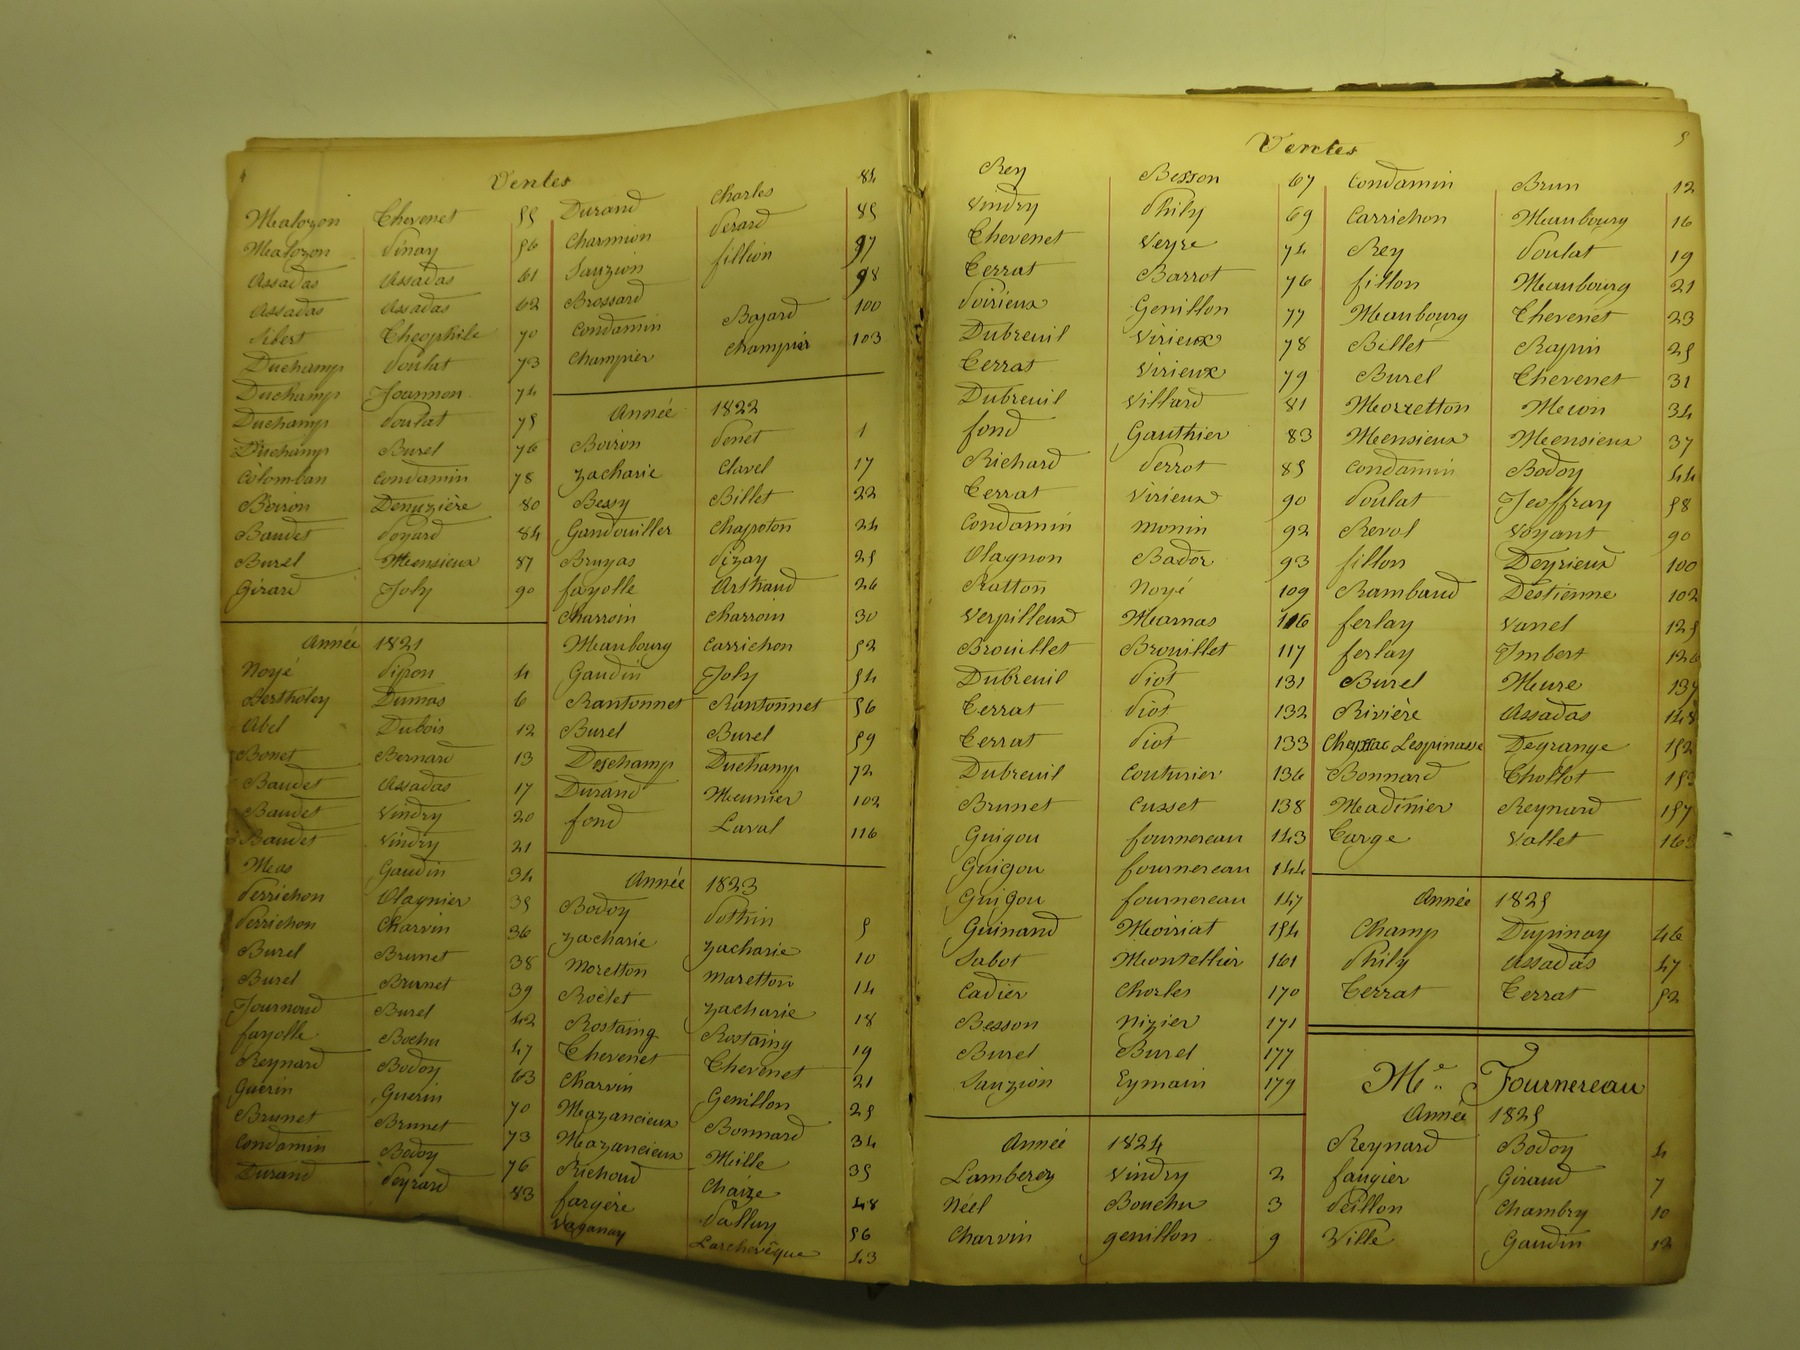 4
Ventes
Malozon Chevenet 55
Malozon Pinay 56
Assadas Assadas 61
Assadas Assadas 62
Sibert Theophile 70
Duchamp Poulat 73
Duchamp Joannon 74
Duchamp Poulat 75
Duchamp Burel 76
Colomban Condamin 78
Boiron Denuzière 80
Baudet Poyard 84
Burel Mensieux 87
Girard Joly 90
Année 1821
Noyé Pipon 4
Bertholey Dumas 6
Abel Dubois 12
Bonet Bernard 13
Baudet Assadas 17
Baudet Vindry 20
Baudet Vindry 21
Mas Gaudin 34
Perrichon Olagnier 35
Perrichon Charvin 36
Burel Brunet 38
Burel Brunet 39
Journoud Burel 42
fayolle Bochu 47
Reynard Bodoy 63
Guerin Guerin 70
Brunet Brunet 73
Condamin Bodoy 76
Durand Peyrard 83
Durand Charles 84
Charmion Perard 85
Sauzion fillion 97
Brossard 98
Condamin Bojard 100
Champier Champier 103
Année 1822
Boiron Penet 1
Zacharie Clavel 17
Bessy Billet 22
Gandouiller Chapoton 24
Bruyas Pizay 25
fayolle Arthaud 26
Charroin Charroin 30
Maubourg Carrichon 52
Gaudin Joly 54
Rantonnet Rantonnet 56
Burel Burel 59
Deschamp Duchamp 72
Durand Meunier 102
fond Laval 116
Année 1823
Bodoy Pothin 5
Zacharie Zacharie 10
Moretton Maretton 14
Roëlet Zacharie 18
Rostaing Rostaing 19
Chevenet Chevenet 21
Charvin Genillon 25
Mazancieux Bonnard 34
Mazancieux Mille 35
Richoud Chaize 48
fargère Palluy 56
Vaganay Larchevêque 43
5
Ventes
Rey Besson 67
Vindry Phily 69
Chevenet Veyre 74
Terrat Barrot 76
Poirieux Genillon 77
Dubreuil Virieux 78
Terrat Virieux 79
Dubreuil Villard 81
fond Gauthier 83
Richard Perrot 85
Terrat Virieux 90
Condamin Monin 92
Olagnon Bador 93
Ratton Noyé 109
Verpilleux Marnas 116
Brouillet Brouillet 117
Dubreuil Piot 131
Terrat Piot 132
Terrat Piot 133
Dubreuil Couturier 136
Brunet Cusset 138
Guigou fournereau 143
Guigou fournereau 144
Guigou fournereau 147
Guinand Moiriat 154
Sabot Montellier 161
Cadier Charles 170
Besson Nizier 171
Burel Burel 177
Sauzion Eymain 179
Année 1824
Lamberey Vindry 2
Néel Bouchu 3
Charvin genillon 9
Condamin Brun 12
Carrichon Maubourg 16
Rey Poulat 19
fillon Maubourg 21
Maubourg Chevenet 23
Billet Rapin 25
Burel Chevenet 31
Morretton Meron 34
Mensieux Mensieux 37
Condamin Bodoy 44
Poulat Jeoffray 58
Revol Voyant 90
fillon Deyrieux 100
Rambaud Destienne 102
ferlay Vanel 125
ferlay Imbert 126
Burel Mure 137
Rivière Assadas 148
Cheyssac Lespinasse Degrange 152
Bonnard Chollot 153
Madinier Reynard 157
Targe Vallet 163
Année 1825
Champ Dupinay 46
Phily Assadas 47
Terrat Terrat 52
Me Fournereau
Année 1825
Reynard Bodoy 4
faugier Giraud 7
Peillon Chambry 10
Ville Gaudin 12